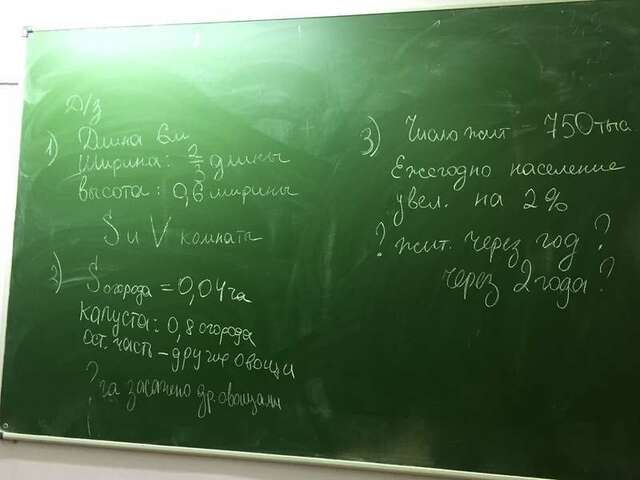 Д/з
1) Длина 6м
Ширина: 2/3 длины
высота: 0,6 ширины
S и V комнаты
2) S огорода = 0,04 га
капуста: 0,8 огорода
ост. часть – другие овощи
? га засажено др. овощами
3) Число жит – 750 тыс
Ежегодно население
увел. на 2%
? жит. через год ?
через 2 года ?